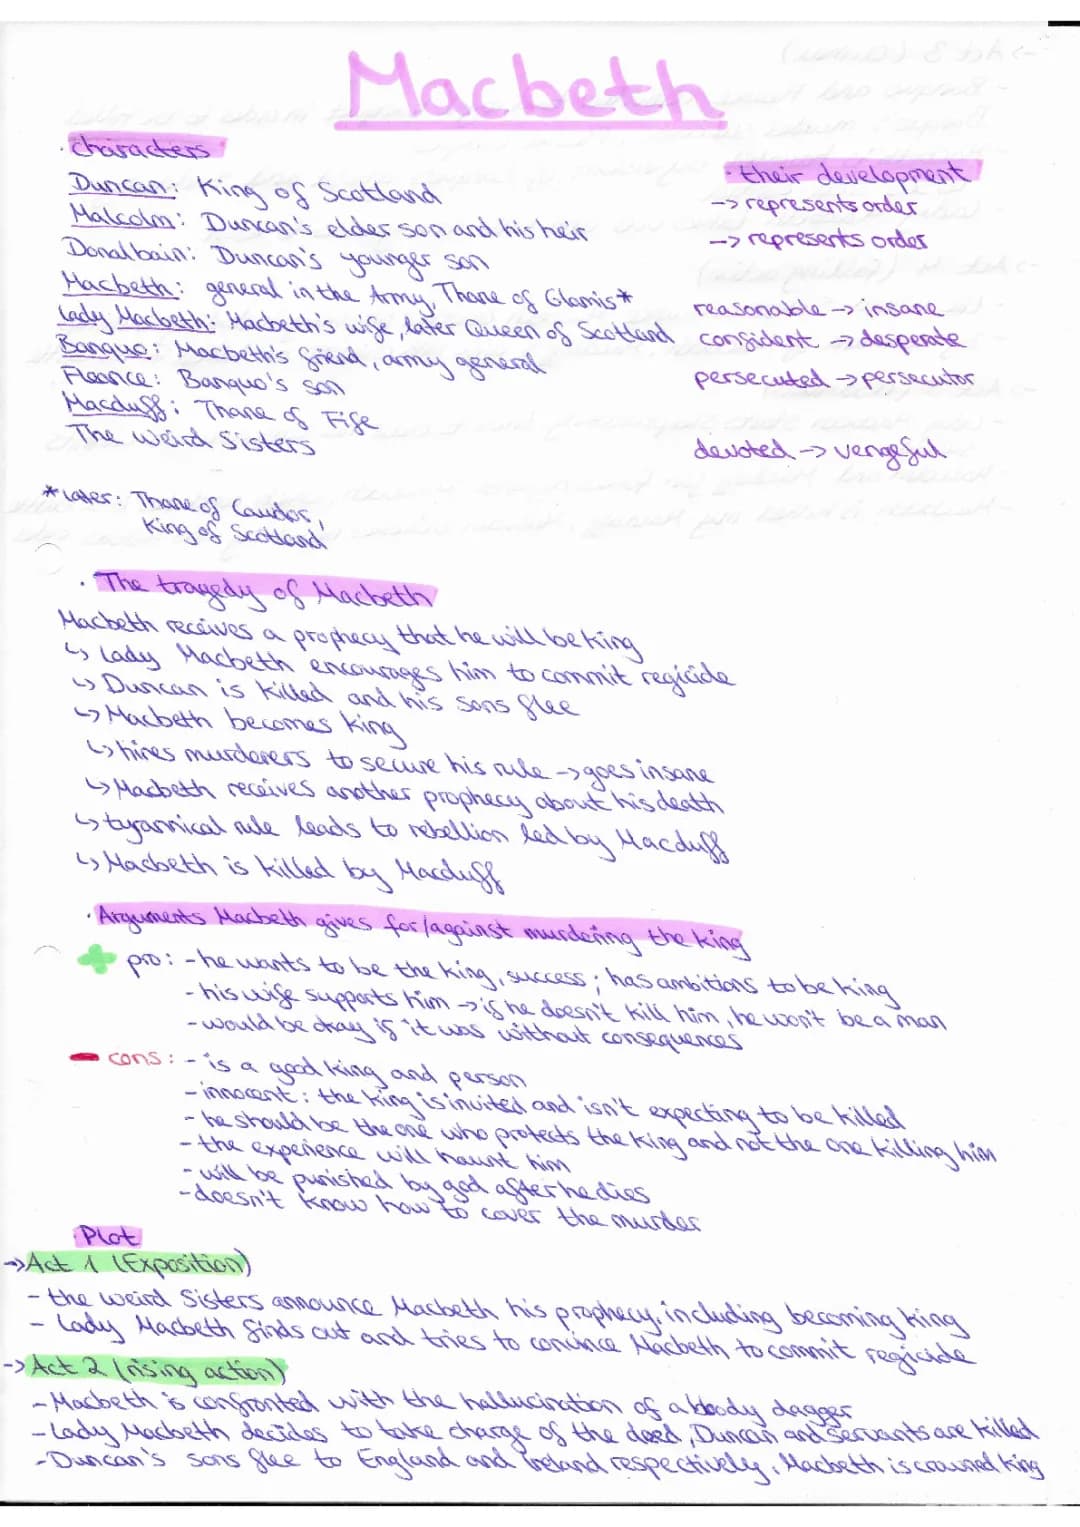 Macbeth
· characters
Duncan: King of Scotland
Malcolm: Duncan's elder son and his heir
Donalbain: Duncan's younger son
Macbeth: general in the Army, Thane of Glamis*
Lady Macbeth: Macbeth's wife, later Queen of Scotland
Banquo: Macbeth's friend, army general
Fleance: Banquo's son
Macduff: Thane of Fife
The weird Sisters
· their development
-> represents order
-> represents order
reasonable -> insane
confident -> desperate
persecuted -> persecutor
devoted -> vengeful
* later: Thane of Cawdor,
King of Scotland
· The tragedy of Macbeth
Macbeth receives a prophecy that he will be king
↳ Lady Macbeth encourages him to commit regicide
↳ Duncan is killed and his sons flee
↳ Macbeth becomes king
↳ hires murderers to secure his rule -> goes insane
↳ Macbeth receives another prophecy about his death
↳ tyrannical rule leads to rebellion led by Macduff
↳ Macbeth is killed by Macduff
· Arguments Macbeth gives for/against murdering the king
+ pro: - he wants to be the king, success; has ambitions to be king
- his wife supports him -> if he doesn't kill him, he won't be a man
- would be okay if it was without consequences
- cons: - is a good king and person
- innocent: the king is invited and isn't expecting to be killed
- he should be the one who protects the king and not the one killing him
- the experience will haunt him
- will be punished by god after he dies
- doesn't know how to cover the murder
· Plot
-> Act 1 (Exposition)
- the weird Sisters announce Macbeth his prophecy, including becoming king
- Lady Macbeth finds out and tries to convince Macbeth to commit regicide
-> Act 2 (rising action)
- Macbeth is confronted with the hallucination of a bloody dagger
- Lady Macbeth decides to take charge of the deed, Duncan and servants are killed
- Duncan's sons flee to England and Ireland respectively, Macbeth is crowned king